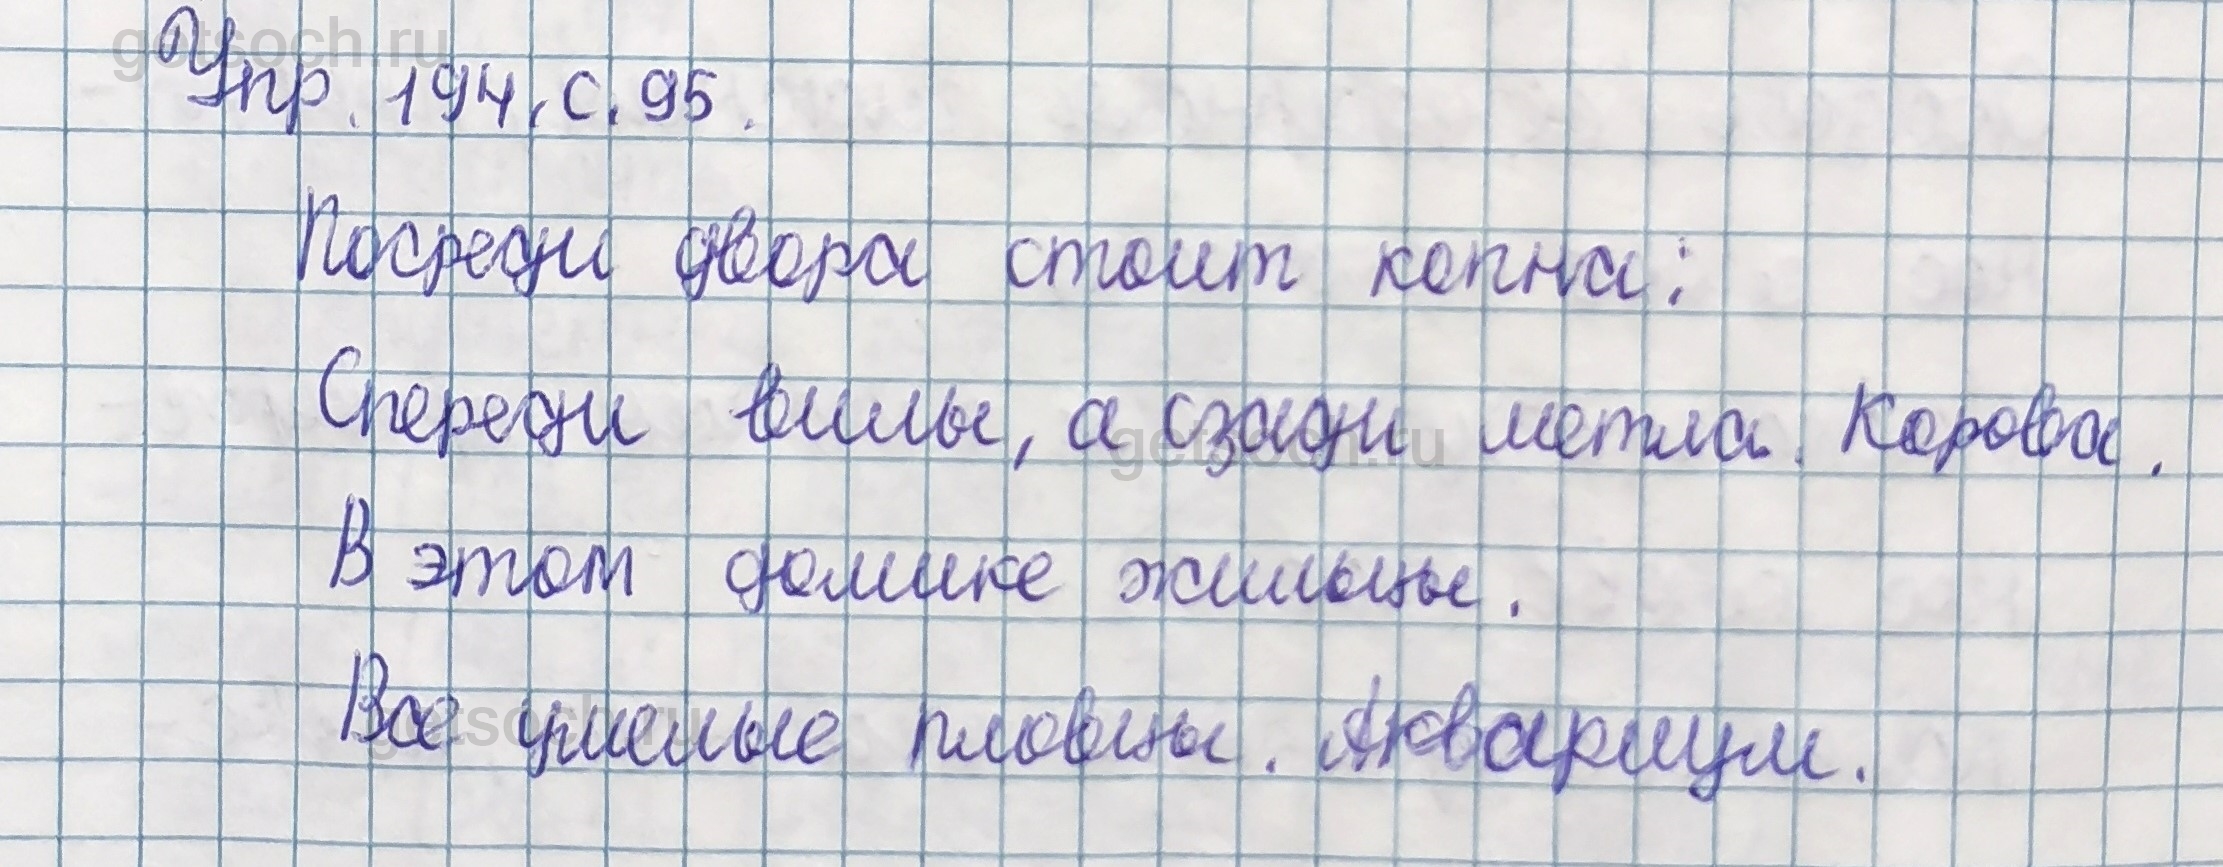 Упр. 194, с. 95.
Посреди двора стоит копна:
Спереди вилы, а сзади метла. Корова.
В этом домике жильцы.
Все умелые пловцы. Аквариум.
getsoch.ru
getsoch.ru
getsoch.ru